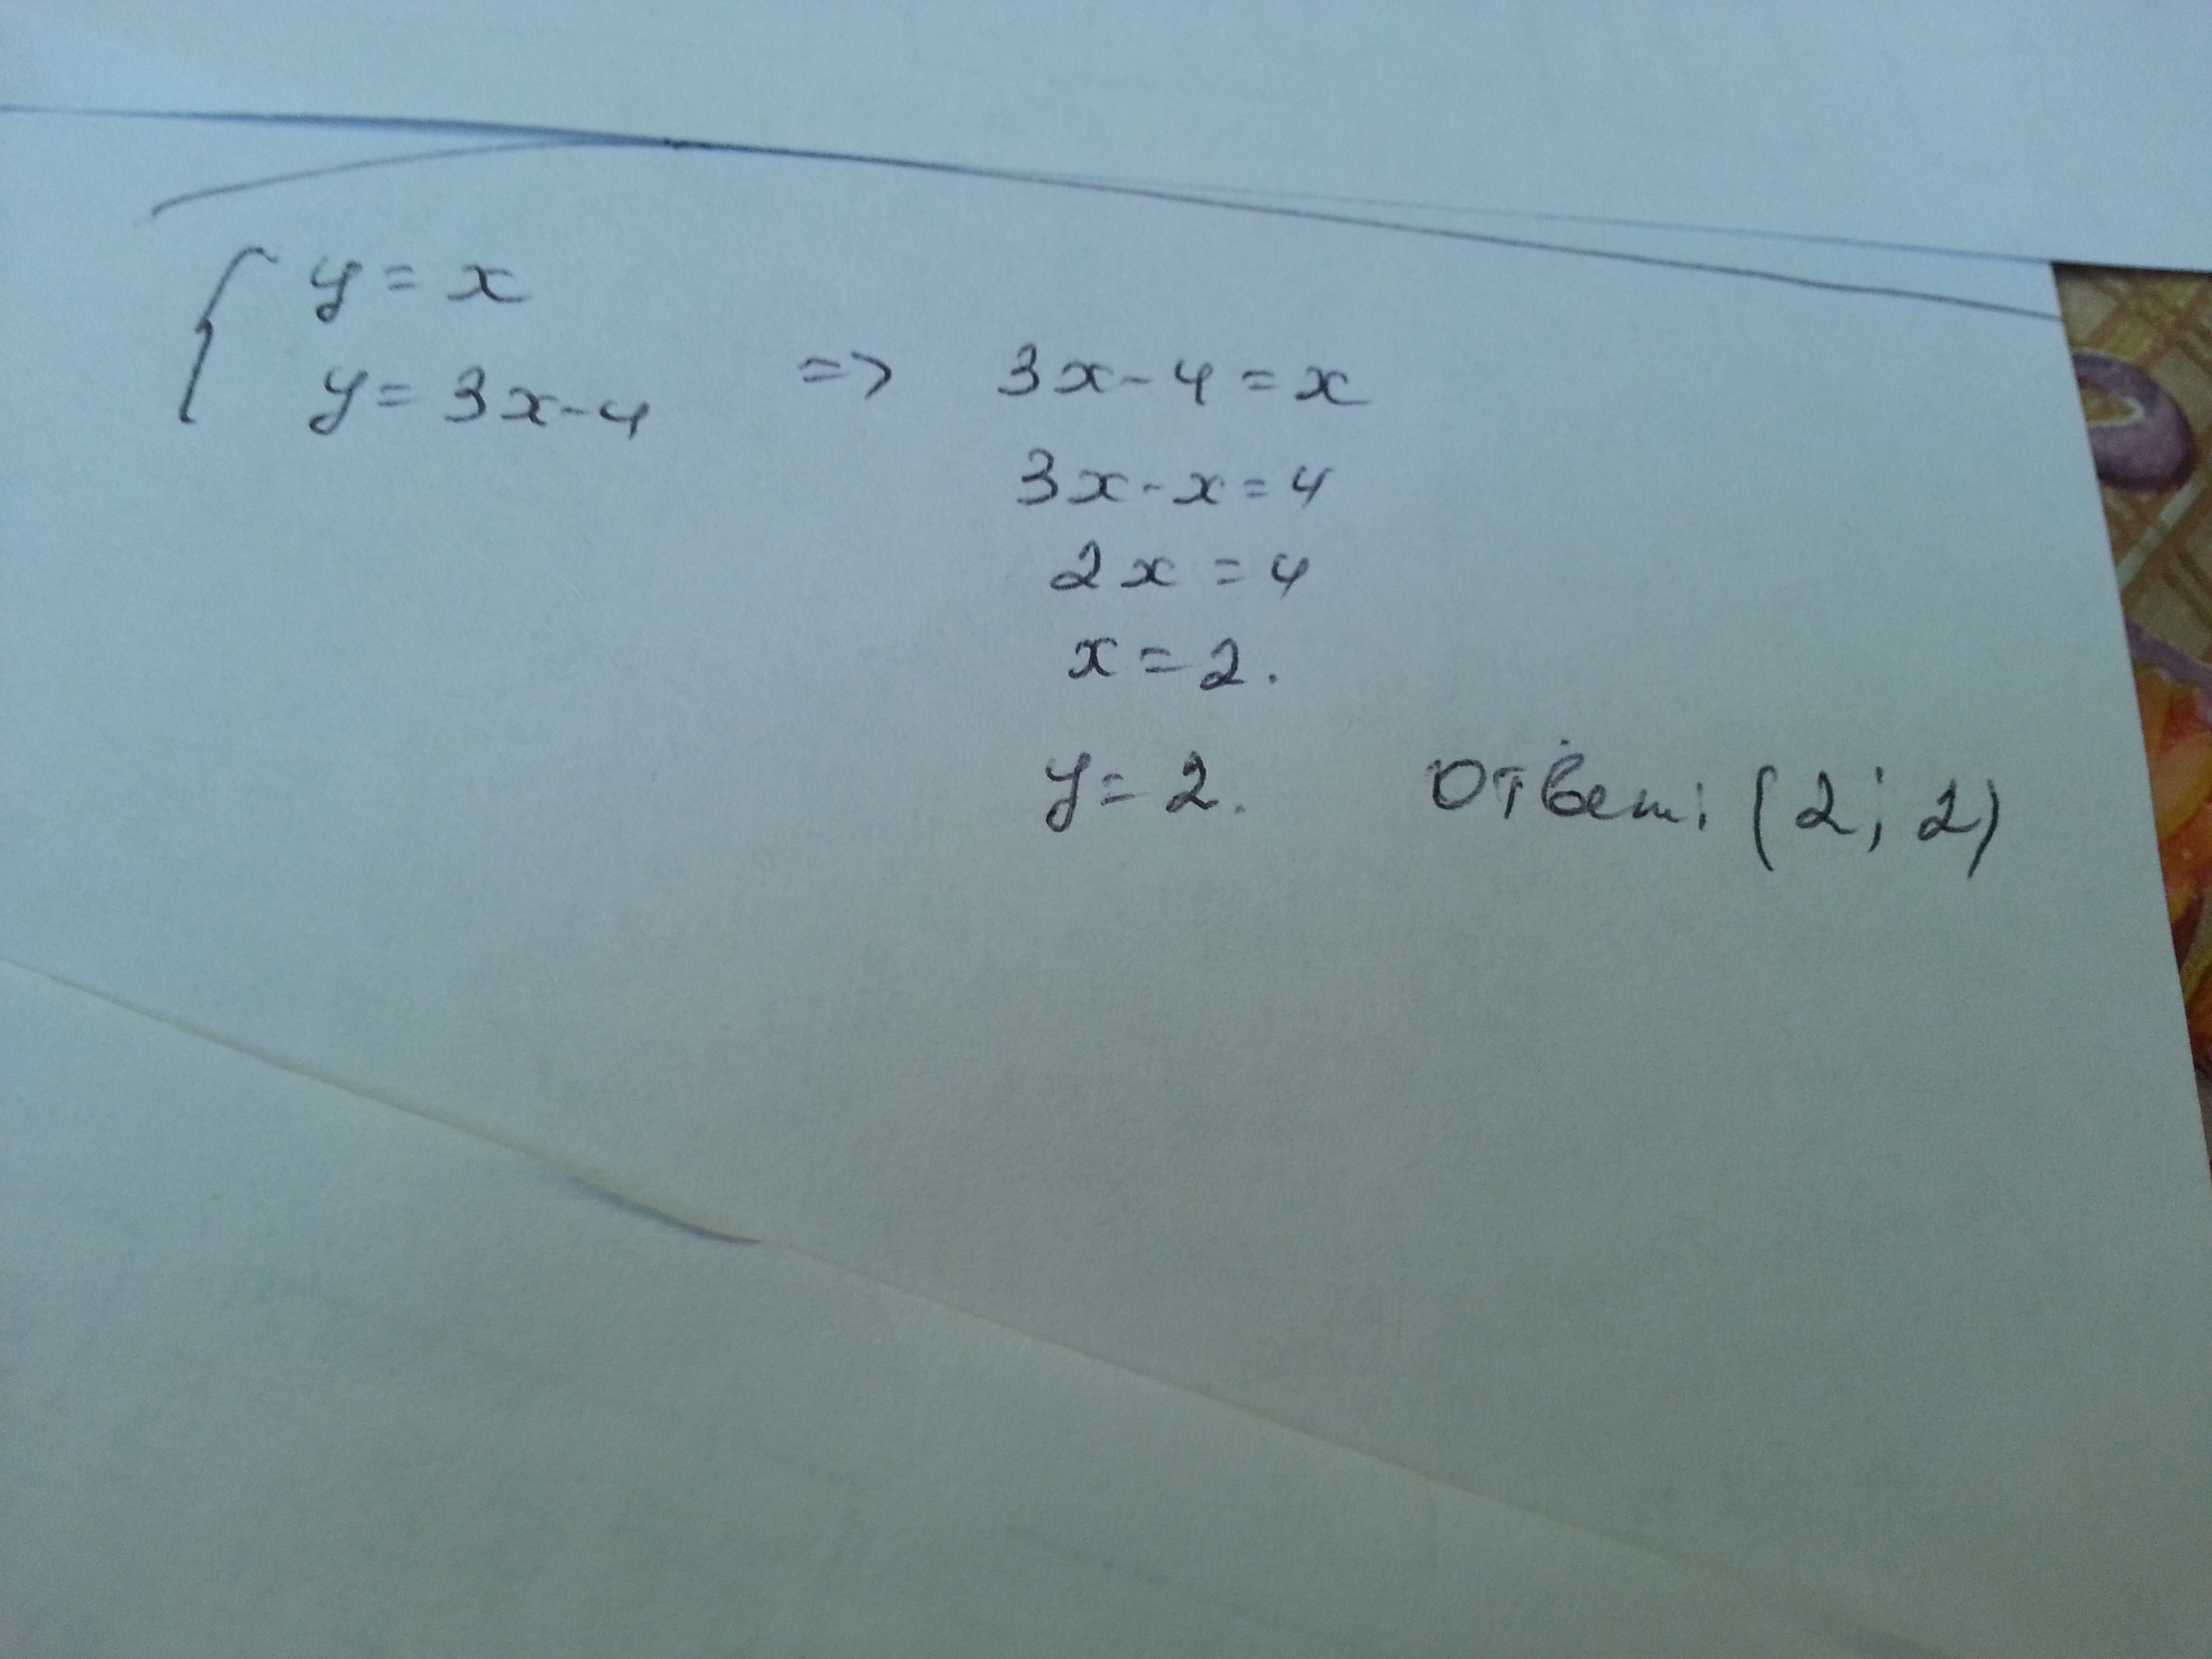 { y = x
y = 3x - 4 => 3x - 4 = x
3x - x = 4
2x = 4
x = 2.
y = 2. Ответ: (2; 2)